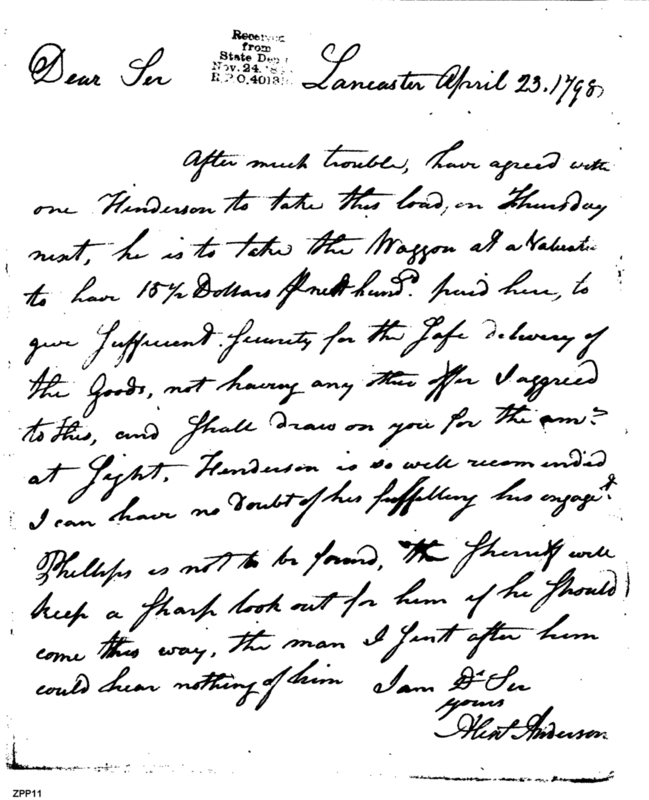 Received
from
State Dep
Nov. 24.
R.P.O. 4013
Dear Ser Lancaster April 23. 1798
After much trouble, have agreed with
one Henderson to take this load, on Thursday
next, he is to take the Waggon at a
to have 15½ Dollars nett hund.d paid here, to
give Suffecient Security for the Safe delivery of
the Goods, not having any other offer I aggreed
to this, and Shall draw on you for the am.t
at Sight. Henderson is so well recomended
I can have no Doubt of his fulfilling his engage.t
Phillips is not to be found, the Sherriff will
keep a Sharp look out for him if he Should
come this way, the man I Sent after him
could hear nothing of him I am Dr Ser
yours
Anderson
ZPP11